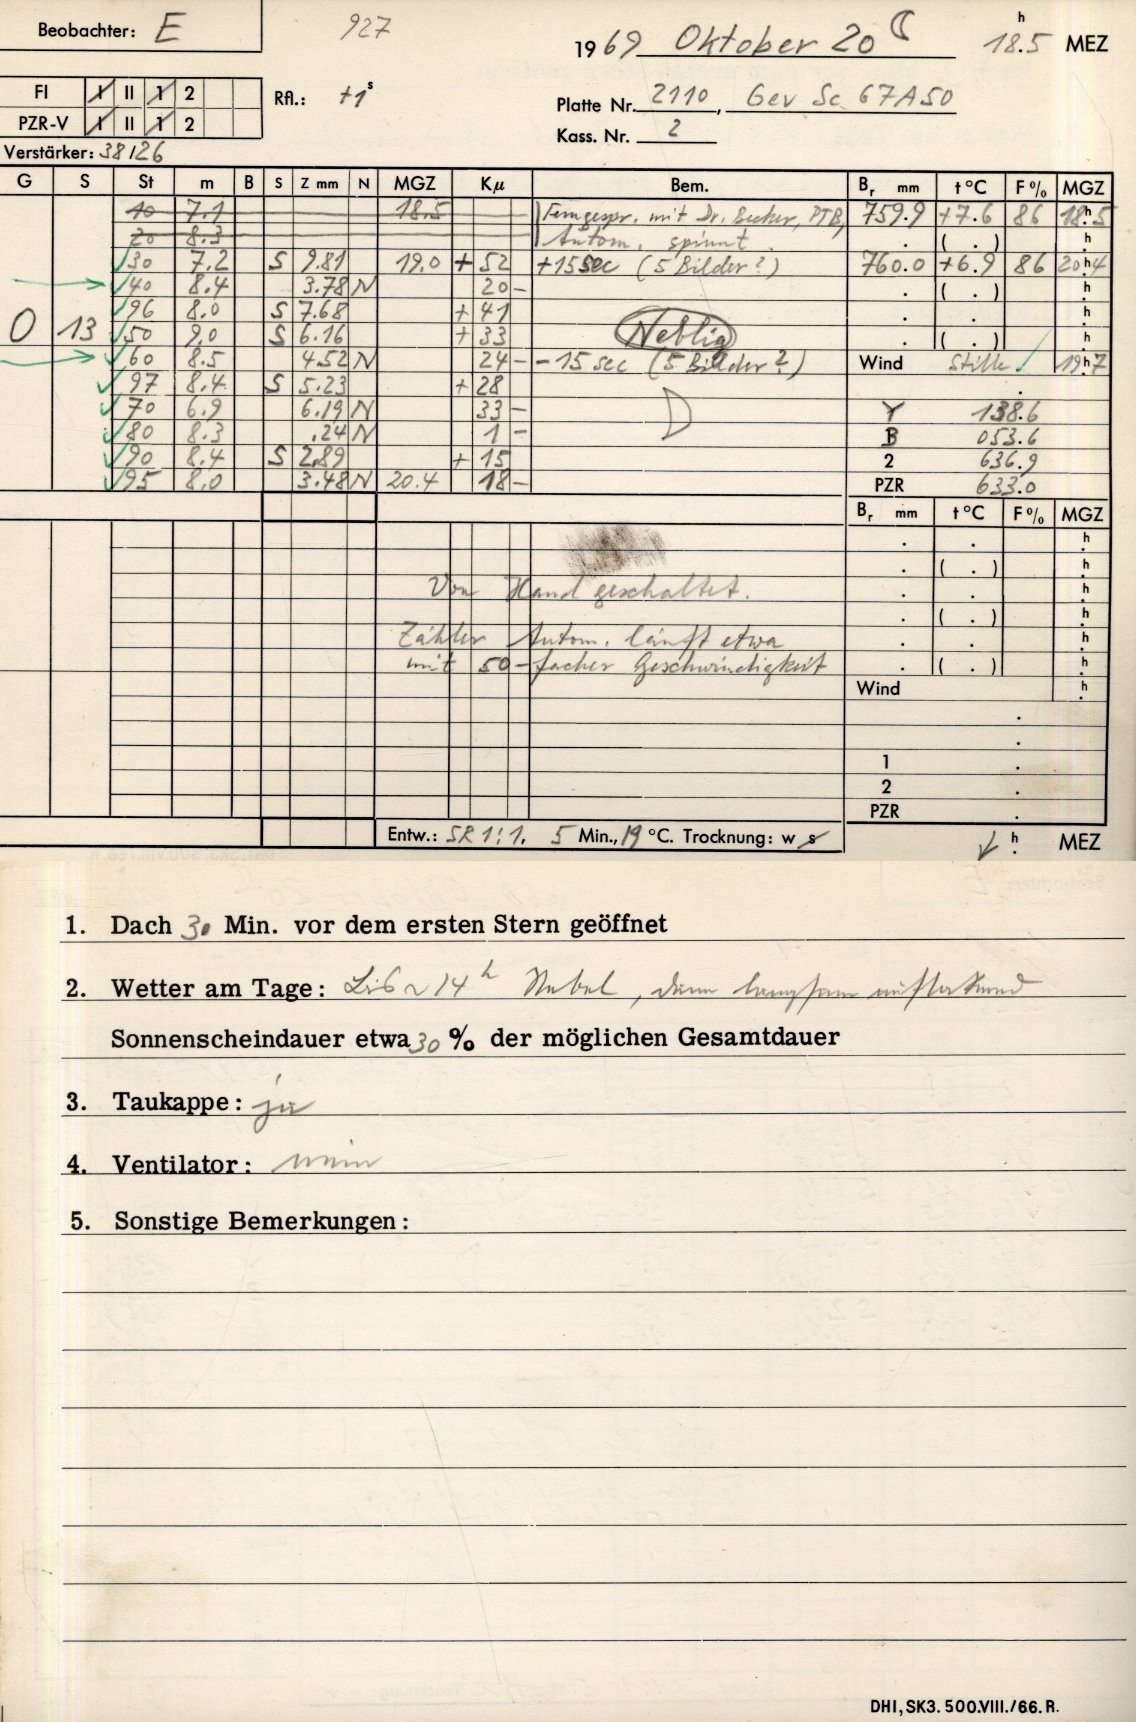 Beobachter: E 927 1969 Oktober 20 ☾ 18.5 h MEZ
FI I II 1 2 Rfl.: +1s Platte Nr. 2110, Gev Sc 67A50
PZR-V I II 1 2 Kass. Nr. 2
Verstärker: 38/26
G S St m B S Z mm N MGZ Kμ Bem. Br mm t °C F % MGZ
10 7.1 18.5 Ferngespr. mit Dr. Becker, PTB, 759.9 +7.6 86 18.h5
20 8.3 Autom. spinnt. . ( . ) h.
✓30 7.2 S 9.81 19.0 + 52 +15sec (5 Bilder?) 760.0 +6.9 86 20h4
→ ✓40 8.4 3.78 N 20 - . ( . ) h.
✓96 8.0 S 7.68 + 41 . . h.
0 13 ✓50 9.0 S 6.16 + 33 Neblig . ( . ) h.
→ ✓60 8.5 4.52 N 24 - -15 sec (5 Bilder?) Wind Stille ✓ 19h7
✓97 8.4 S 5.23 + 28 .
✓70 6.9 6.19 N 33 - Y 138.6
✓80 8.3 .24 N 1 - B 053.6
✓90 8.4 S 2.89 + 15 2 636.9
✓95 8.0 3.48 N 20.4 18 - PZR 633.0
Br mm t °C F % MGZ
. . h.
. ( . ) h.
Von Hand geschaltet. . . h.
. ( . ) h.
Zähler Autom. läuft etwa . . h.
mit 50-facher Geschwindigkeit . ( . ) h.
Wind h.
.
.
1 .
2 .
PZR .
Entw.: SR 1:1, 5 Min., 19 °C. Trocknung: w s ↓ h. MEZ
1. Dach 30 Min. vor dem ersten Stern geöffnet
2. Wetter am Tage: bis ~ 14h Nebel, dann langsam auflockernd
Sonnenscheindauer etwa 30 % der möglichen Gesamtdauer
3. Taukappe: ja
4. Ventilator: nein
5. Sonstige Bemerkungen:
DHI, SK3. 500.VIII./66. R.